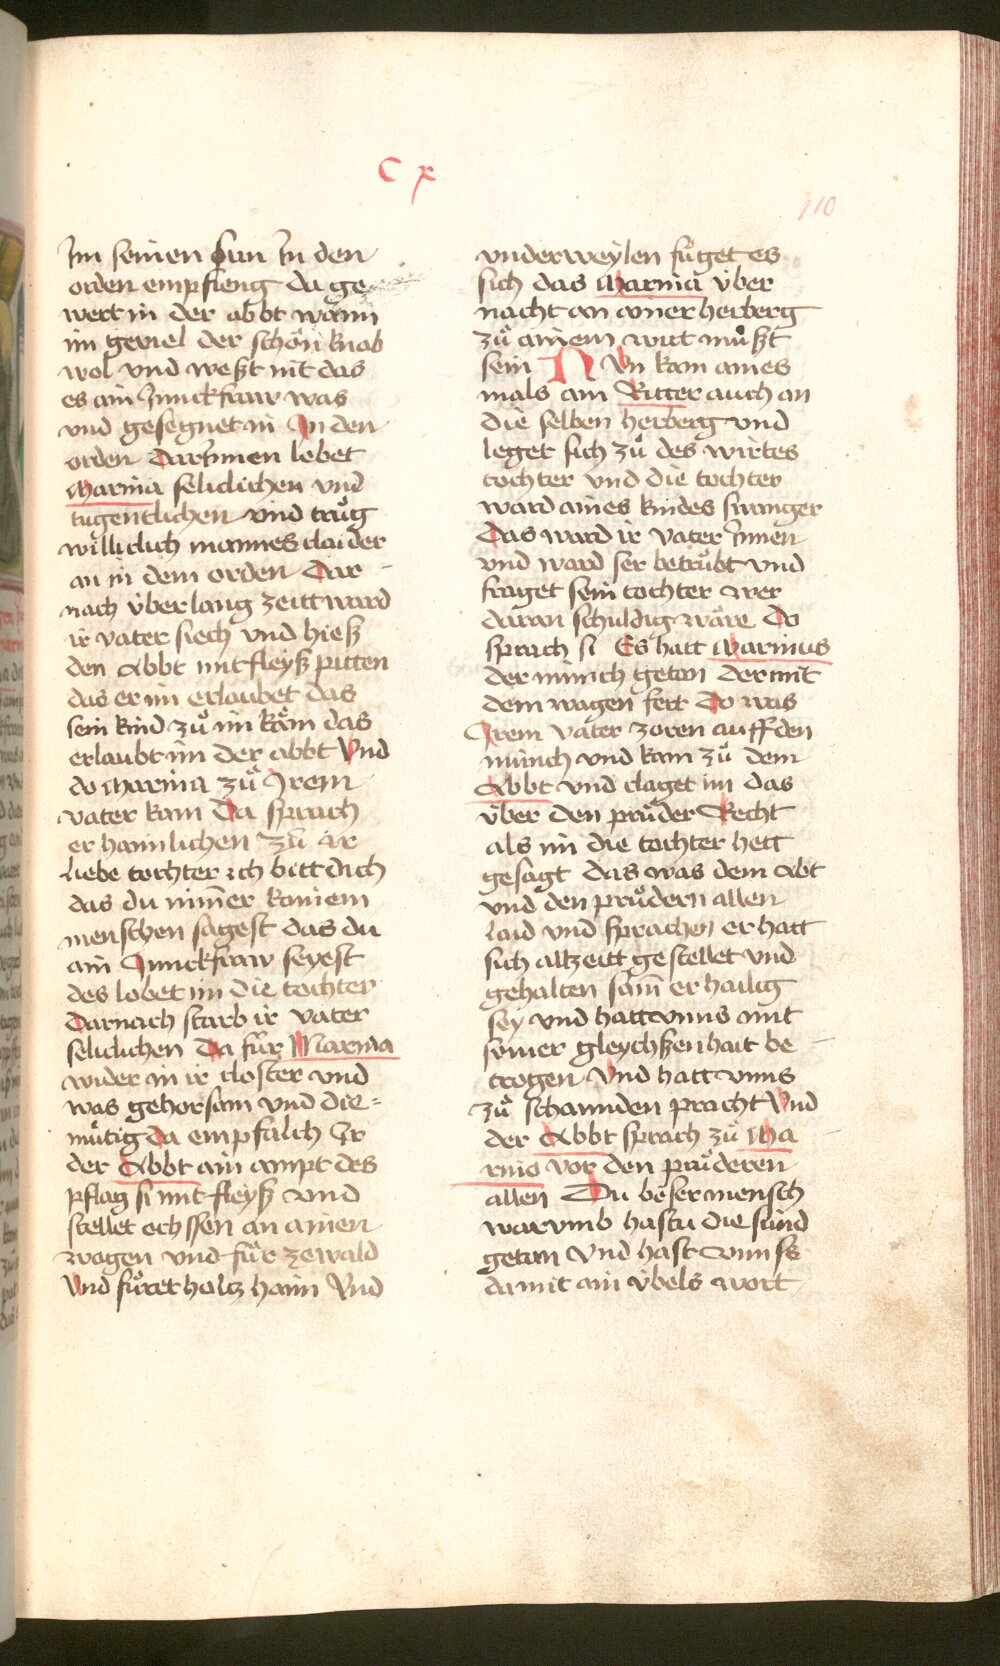 C x
110
Im seinen sun In den
orden empfieng da ge
wert in der abbt wann
im geviel der schön knab
wol vnd weßt nit das
es ain Junckfraw was
vnd gesegnet in In den
orden Darinnen lebet
Marina seliclichen vnd
tugentlichen vnd trůg
williclich mannes claider
an in dem orden Dar -
nach über lang zeitt ward
ir vater siech vnd hieß
den Abbt mit fleyß pitten
das er im erlaubet das
sein kind zů im käm das
erlaubt im der abbt Vnd
do Marina zů Irem
vater kam Da sprach
er haimlichen zů ir
Liebe tochter ich bitt dich
das du nim̄er kainem
menschen sagest das du
ain Junckfraw seyest
des lobet im die tochter
Darnach starb ir vater
seliclichen Da für Marina
wider in ir closter vnd
was gehorsam vnd die=
mütig da empfalch Ir
der Abbt ain ampt des
pflag si mit fleyß vnd
stellet ochssen an ainen
wagen vnd für ze wald
Vnd füret holtz haim Vnd
vnderweylen füget es
sich das Marina über
nacht an ainer herberg
zů ainem wirt můßt
sein NVn kam aines
mals ain Ritter auch an
die selben herberg vnd
leget sich zů des wirtes
tochter vnd die tochter
ward aines kindes swanger
Das ward ir vater Innen
vnd ward ser betrübt vnd
fraget sein tochter wer
daran schuldig wäre Do
sprach si Es hatt Marinus
der münch getan der mit
dem wagen fert Do was
Irem vater zoren auff den
münch vnd kam zů dem
Abbt vnd claget im das
über den průder Recht
als im die tochter hett
gesagt das was dem Abt
vnd den průdern allen
Laid vnd sprachen er hatt
sich allzeitt gestellet vnd
gehalten sam̄ er hailig
sey vnd hatt vnns mit
seiner gleychßenhait be -
trogen Vnd hatt vnns
zů schannden pracht Vnd
der Abbt sprach zů Ma
rino vor den prüderen
allen Du böser mensch
warvmb hastu die sünd
getan Vnd hast vnnß
damit ain übels wort